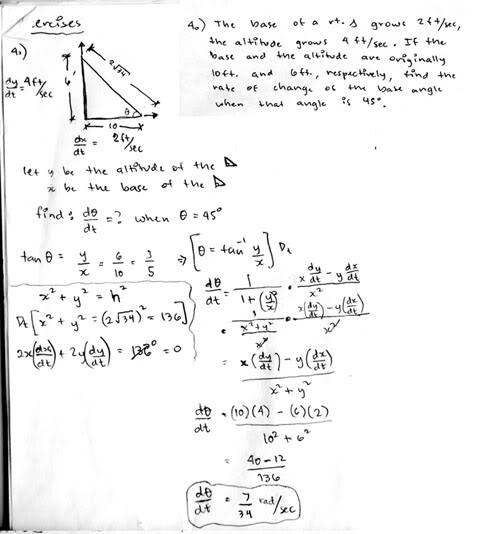 ercises
4.) The base of a rt. Δ grows 2ft/sec,
the altitude grows 4 ft/sec. If the
base and the altitude are originally
10ft. and 6ft., respectively, find the
rate of change of the base angle
when that angle is 45°.
4.)
dy/dt = 4ft/sec
6'
2√34
θ
10
dx/dt = 2ft/sec
let y be the altitude of the ⊿
x be the base of the ⊿
find: dθ/dt = ? when θ = 45°
tan θ = y/x = 6/10 = 3/5 ⇒ [θ = tan⁻¹ y/x] Dt
x² + y² = h²
Dt [x² + y² = (2√34)² = 136]
2x(dx/dt) + 2y(dy/dt) = 136⁰ = 0
dθ/dt = 1/(1 + (y/x)²) · (x dy/dt − y dx/dt)/x²
= 1/((x²+y²)/x²) · (x(dy/dt) − y(dx/dt))/x²
= (x(dy/dt) − y(dx/dt))/(x² + y²)
dθ/dt = ((10)(4) − (6)(2))/(10² + 6²)
= (40 − 12)/136
dθ/dt = 7/34 rad/sec